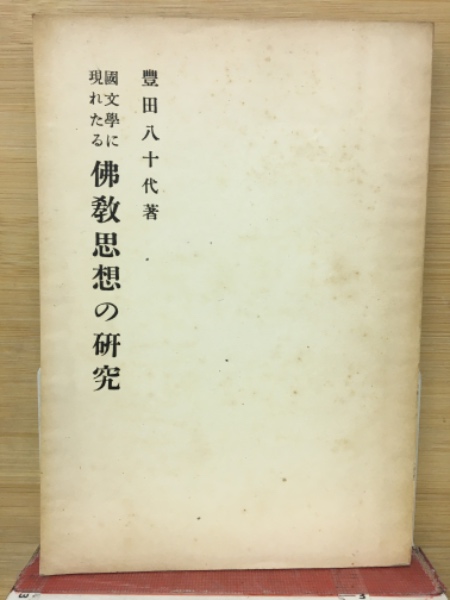 豐田八十代著
國文學に
現れたる
佛教思想の研究